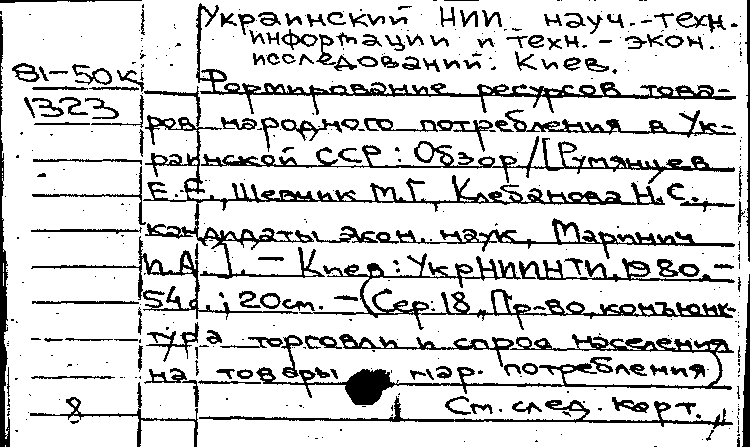 Украинский НИИ науч.-техн.
информации и техн.-экон.
исследований. Киев.
81-50к Формирование ресурсов това-
1323 ров народного потребления в Ук-
раинской ССР: Обзор/[Румянцев
Е.Е., Шевчик М.Г., Клебанова Н.С.,
кандидаты экон. наук, Маринич
П.А.]. - Киев: УкрНИИНТИ, 1980.-
54с.; 20см. - (Сер. 18, Пр-во, конъюнк-
тура торговли и спроа населения
на товары нар. потребления)
8 См. след. карт. //